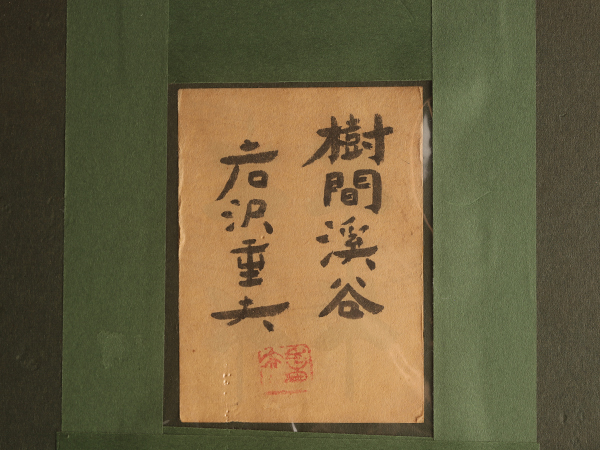 樹間溪谷
岩沢重夫